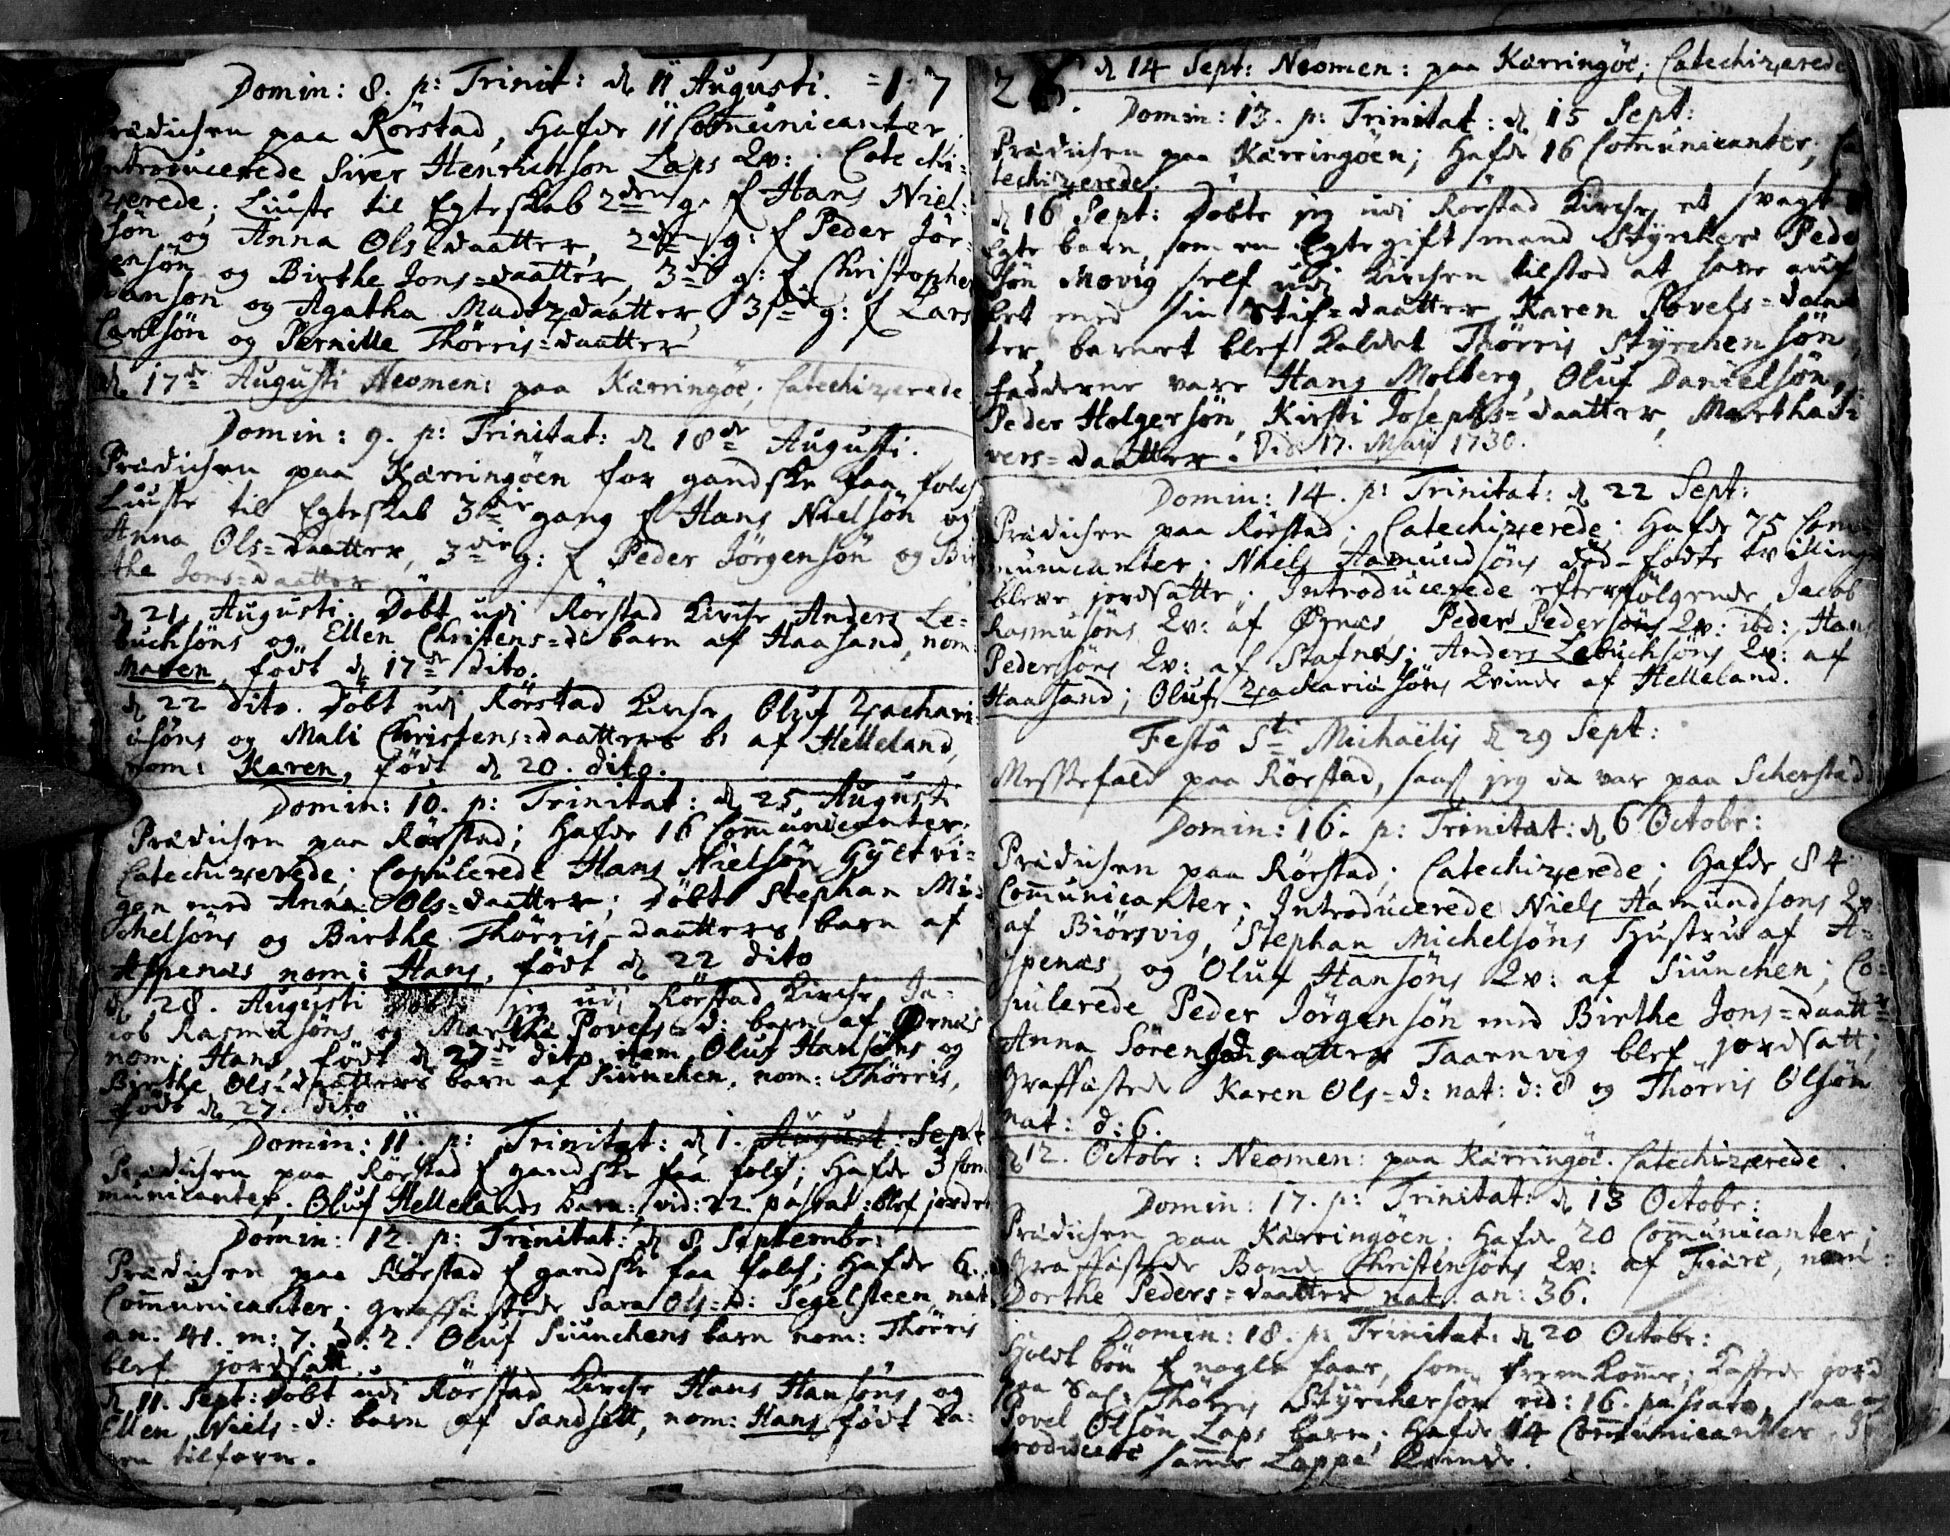 Domin: 8. p: Trinit: d 11 Augusti. =1 7
Prædichen paa Rörstad, Hafde 11 Communicanter
Introducerede Siver Henrichsøn Laps Qv: Catechi=
zerede; Liuste til Egteskab 2den g. f Hans Niel=
søn og Anna Ols=daatter, 2den g: f Peder Jör=
gensøn og Birthe Jons=daatter, 3die g: f Christopher
Hansøn og Agatha Madtz=daatter, 3die g: f Lars
Carlsøn og Pernille Thørris=daatter
d 17de Augusti Neomen: paa Kærringöe, Catechizerede
Domin: 9. p: Trinitat: d 18de Augusti.
Prædichen paa Kærringöen for gandske faa folch
Liuste til Egteskab 3die gang f Hans Nielsøn og
Anna Ols=daatter, 3die g: f Peder Jörgensøn og Bir
the Jons=daatter
d 21 Augusti. Döbt udj Rörstad Kirche Anders Le=
buchsøns og Ellen Christens=d: barn af Haasand, nom:
Maren, födt d 17de dito.
d 22 dito. Döbt udj Rörstad Kirche Oluf Zachari=
æsøns og Mali Christens=daatters b: af Helleland,
nom: Karen, födt d 20. dito.
Domin: 10. p: Trinitat: d 25 Augusti
Prædichen paa Rörstad; Hafde 16 Communicanter;
Catechizerede; Copulerede Hans Nielsøn Gyltvi=
gen med Anna Ols=daatter; Döbte Stephan Mi=
chelsøns og Birthe Thørris-daatters barn af
Aspenæs nom: Hans, födt d 22 dito
d 28. Augusti Döbte jeg udj Rörstad Kirche Ja=
cob Rasmusøns og Marthe Povels=d: barn af Örnæs
nom: Hans, födt d 27de dito. item Oluf Hansøns og
Birthe Ols=daatters barn af Siunchen, nom: Thørris,
födt d 27. dito
Domin: 11. p: Trinitat: d 1. August: Sept
Prædichen paa Rörstad f gandske faa folch; Hafde 3 Com
municanter. Oluf Hellelands barn: vid: 22. passat: blef jordet
Domin: 12. p: Trinitat: d 8 Septembr:
Prædichen paa Rörstad f gandske faa folch; Hafde 6.
Communicanter; Graffæstede Sara Ols=d: Segelsteen nat
an: 41. m: 7. d: 2. Oluf Siunchens barn nom: Thørris
blef jordsatt.
d 11. Sept: Döbt udi Rörstad Kirche Hans Hansøns og
Ellen Niels=d: barn af Sandsett, nom: Hans födt da=
gen tilforn.
2 d 14 Sept: Neomen: paa Kærringöe; Catechizerede
Domin: 13. p: Trinitat: d 15 Sept:
Prædichen paa Kærringöen; Hafde 16 Communicanter; Ca
techizerede.
d 16 Sept: Döbte jeg udi Rörstad Kirche et svagt
Egte barn, som en Egtegift mand Styrcher Peder
søn Movig self udj Kirchen tilstod at have auf
let med sin Stif=daatter Karen Povels=daat
ter, barnet blef kaldet Thörris Styrchersøn,
fadderne vare Hans Molberg, Oluf Danielsøn,
Peder Holgersøn, Kirsti Josephs=daatter, Martha Si=
vers=daatter. Vid: 17. Maij 1730.
Domin: 14. p: Trinitat: d 22 Sept:
Prædichen paa Rörstad; Catechizerede; Hafde 75 Com
municanter; Niels Aamundsøns död-födte tvillinger
bleve jordsatte. Introducerede efterfölgende Jacob
Rasmusøns Qv: af Örnæs, Peder Pedersøns Qv: ibd: Hans
Pedersøns Qv: af Stafnæs; Anders Lebuchsøns Qv: af
Haasand; Oluf Zachariæsøns Qvinde af Helleland.
Festô Sti Michaëlis d 29 Sept:
Messefald paa Rörstad, saas jeg da var paa Scherstad.
Domin: 16. p: Trinitat: d 6 Octobr:
Prædichen paa Rörstad; Catechizerede; Hafde 84
Communicanter; Introducerede Niels Aamundsøns Qv:
af Biörsvig, Stephan Michelsøns Hustru af A=
spenæs, og Oluf Hansøns Qv: af Siunchen; Co=
pulerede Peder Jörgensøn med Birthe Jons=daatter
Anna Sörens=daatter Taarnvig blef jordsatt;
Graffæstede Karen Ols=d: nat: d: 8 og Thörris Olsøn
nat: d: 6.
d 12. Octobr: Neomen: paa Kærringöe. Catechizerede.
Domin: 17. p: Trinitat: d 13 Octobr:
Prædichen paa Kærringöen; Hafde 20 Communicanter;
Graffæstede Bonde Christensøns Qv: af Fiære, nom:
Dorthe Peders=daatter nat: an: 36.
Domin: 18. p: Trinitat: d 20 Octobr:
Holdt bön f nogle faae, som fremkomme; kastede jord
paa Sal: Thörris Styrchersøn vid: 16. passato, saa og
Povel Olsøn Laps barn; Hafde 14 Communicanter. In
troducere samme Lappe Kvinde.